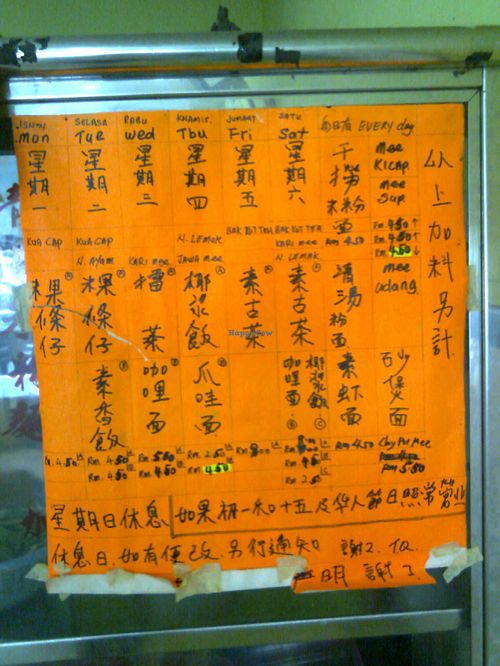 ISNIN SELASA RABU KHAMIS JUMAAT SABTU 每日有 EVERY day
Mon Tue Wed Thu Fri Sat
星期一 星期二 星期三 星期四 星期五 星期六
干捞米粉面 RM 4.50
mee KICAP
mee Sup
Rm 4.50↑
Rm 4.50↑
Rm 4.50↓
以上加料另計
KUA CAP KUA CAP N. LEMAK BAK KUT TEA BAK KUT TEA
N. AYAM KARI mee JAWA mee KARI mee
N. LEMAK
mee udang
粿條仔 粿條仔 擂茶 椰浆飯 素古茶 素古茶 清湯粉面 素虾面 砂煲面
素香飯 咖哩面 爪哇面 咖哩面 椰浆飯
4.50 Rm 4.50 Rm 5.00 Rm 2.50 Rm Rm 4.50 Clay Pot Mee
Rm 4.50 Rm 4.50 Rm 4.50 Rm 2.50 Rm 5.50
星期日休息 如果初一和十五及华人節日照常营业
休息日.如有更改.另行通知 謝2.
明 謝了
HappyCow